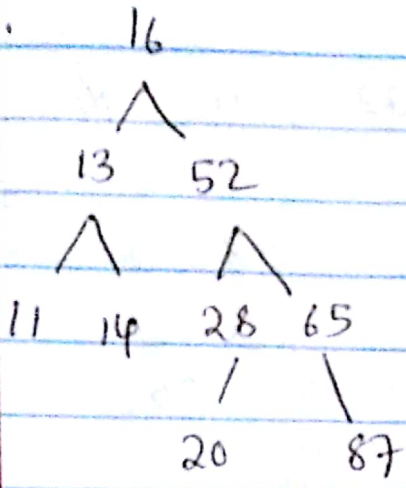 16
13 52
11 14 28 65
20 87